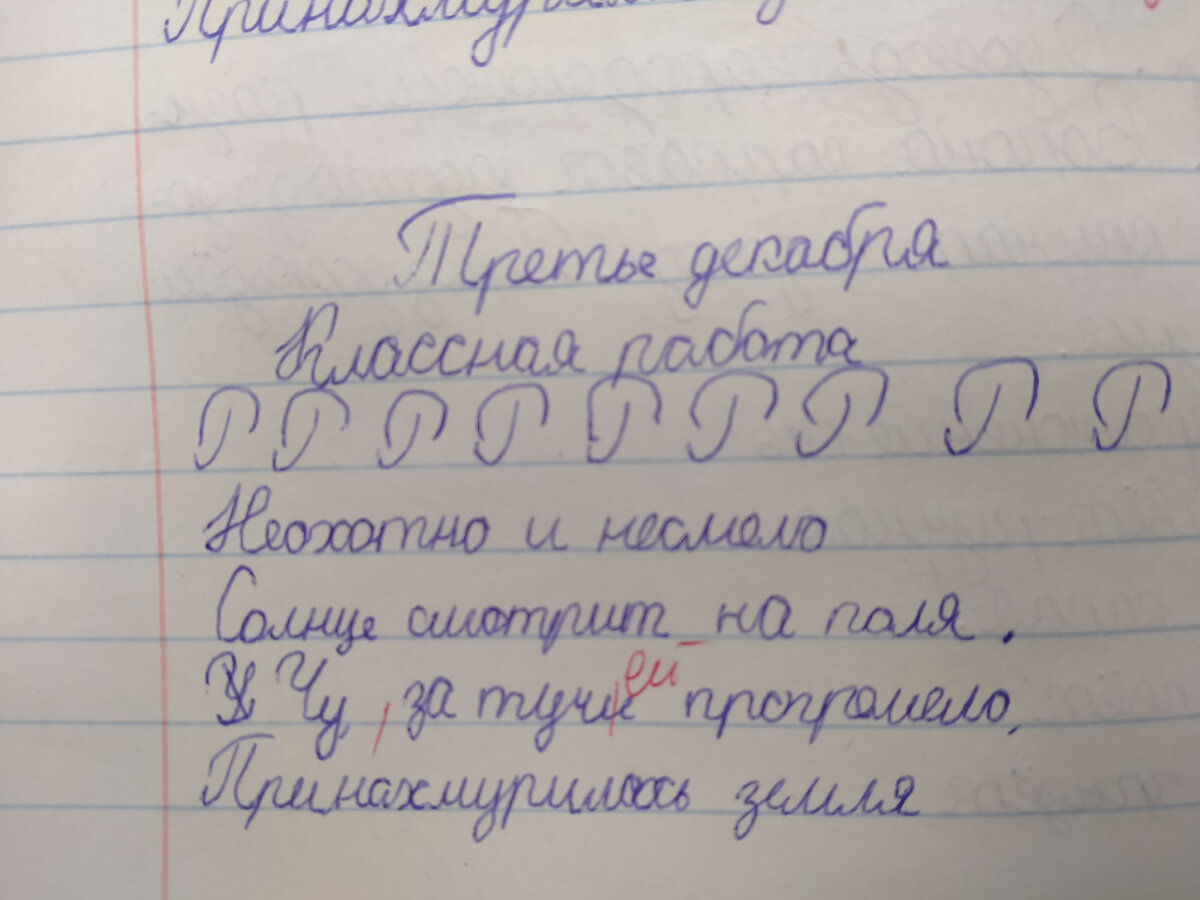 Третье декабря
Классная работа
Г Г Г Г Г Г Г Г Г
Неохотно и несмело
Солнце смотрит на поля.
Чу, за тучей прогромело,
Принахмурилась земля